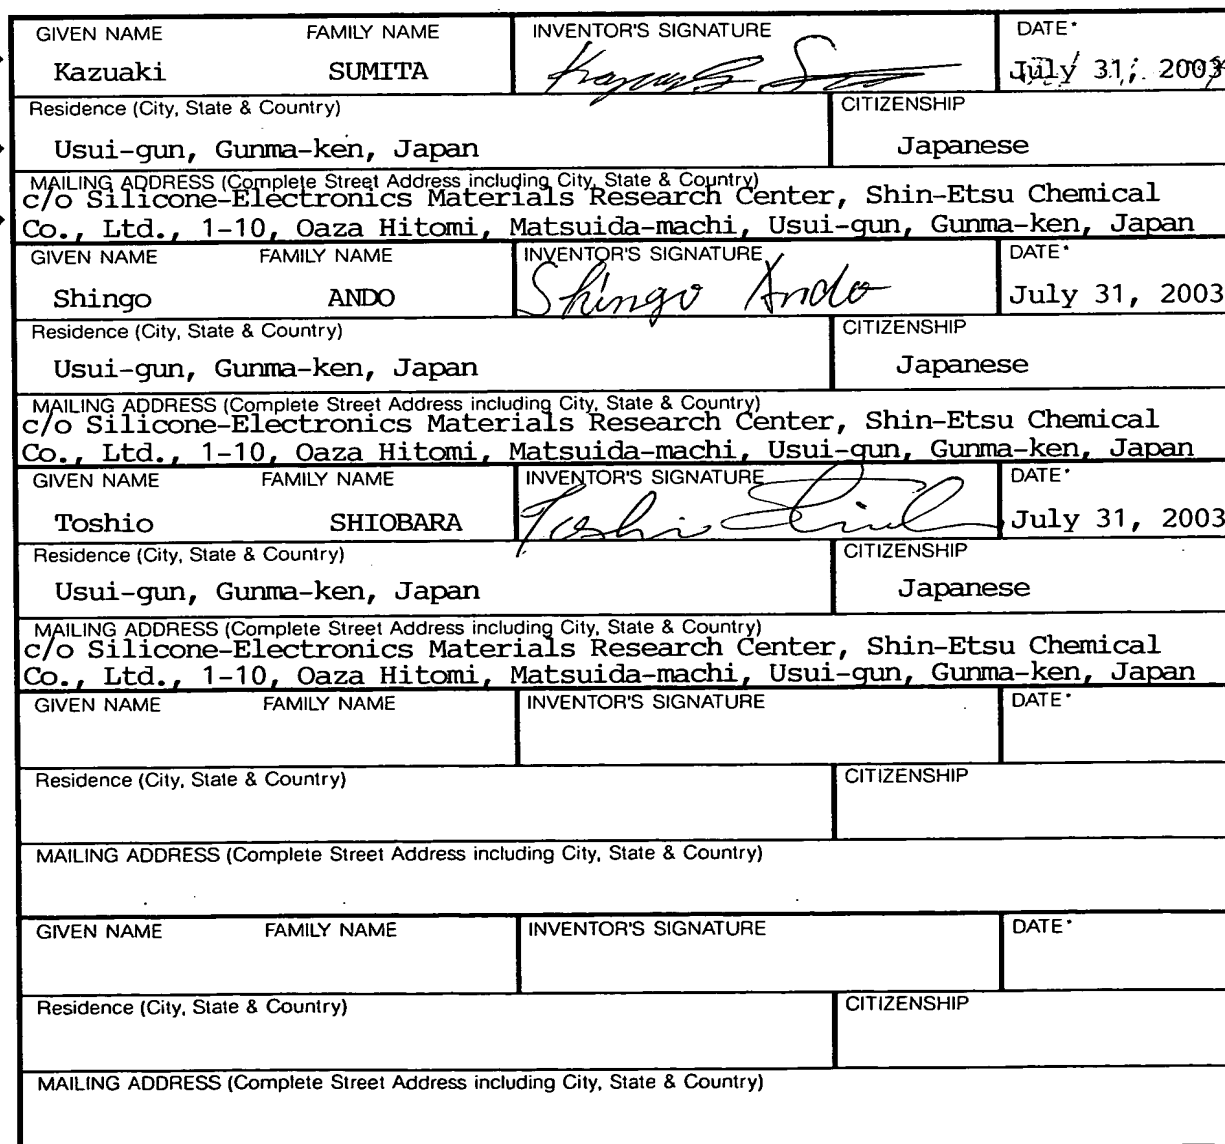 GIVEN NAME FAMILY NAME INVENTOR'S SIGNATURE DATE*
Kazuaki SUMITA July 31, 2003
Residence (City, State & Country) CITIZENSHIP
Usui-gun, Gunma-ken, Japan Japanese
MAILING ADDRESS (Complete Street Address including City, State & Country)
c/o Silicone-Electronics Materials Research Center, Shin-Etsu Chemical
Co., Ltd., 1-10, Oaza Hitomi, Matsuida-machi, Usui-gun, Gunma-ken, Japan
GIVEN NAME FAMILY NAME INVENTOR'S SIGNATURE DATE*
Shingo ANDO Shingo Ando July 31, 2003
Residence (City, State & Country) CITIZENSHIP
Usui-gun, Gunma-ken, Japan Japanese
MAILING ADDRESS (Complete Street Address including City, State & Country)
c/o Silicone-Electronics Materials Research Center, Shin-Etsu Chemical
Co., Ltd., 1-10, Oaza Hitomi, Matsuida-machi, Usui-gun, Gunma-ken, Japan
GIVEN NAME FAMILY NAME INVENTOR'S SIGNATURE DATE*
Toshio SHIOBARA Toshio July 31, 2003
Residence (City, State & Country) CITIZENSHIP
Usui-gun, Gunma-ken, Japan Japanese
MAILING ADDRESS (Complete Street Address including City, State & Country)
c/o Silicone-Electronics Materials Research Center, Shin-Etsu Chemical
Co., Ltd., 1-10, Oaza Hitomi, Matsuida-machi, Usui-gun, Gunma-ken, Japan
GIVEN NAME FAMILY NAME INVENTOR'S SIGNATURE DATE*
Residence (City, State & Country) CITIZENSHIP
MAILING ADDRESS (Complete Street Address including City, State & Country)
GIVEN NAME FAMILY NAME INVENTOR'S SIGNATURE DATE*
Residence (City, State & Country) CITIZENSHIP
MAILING ADDRESS (Complete Street Address including City, State & Country)